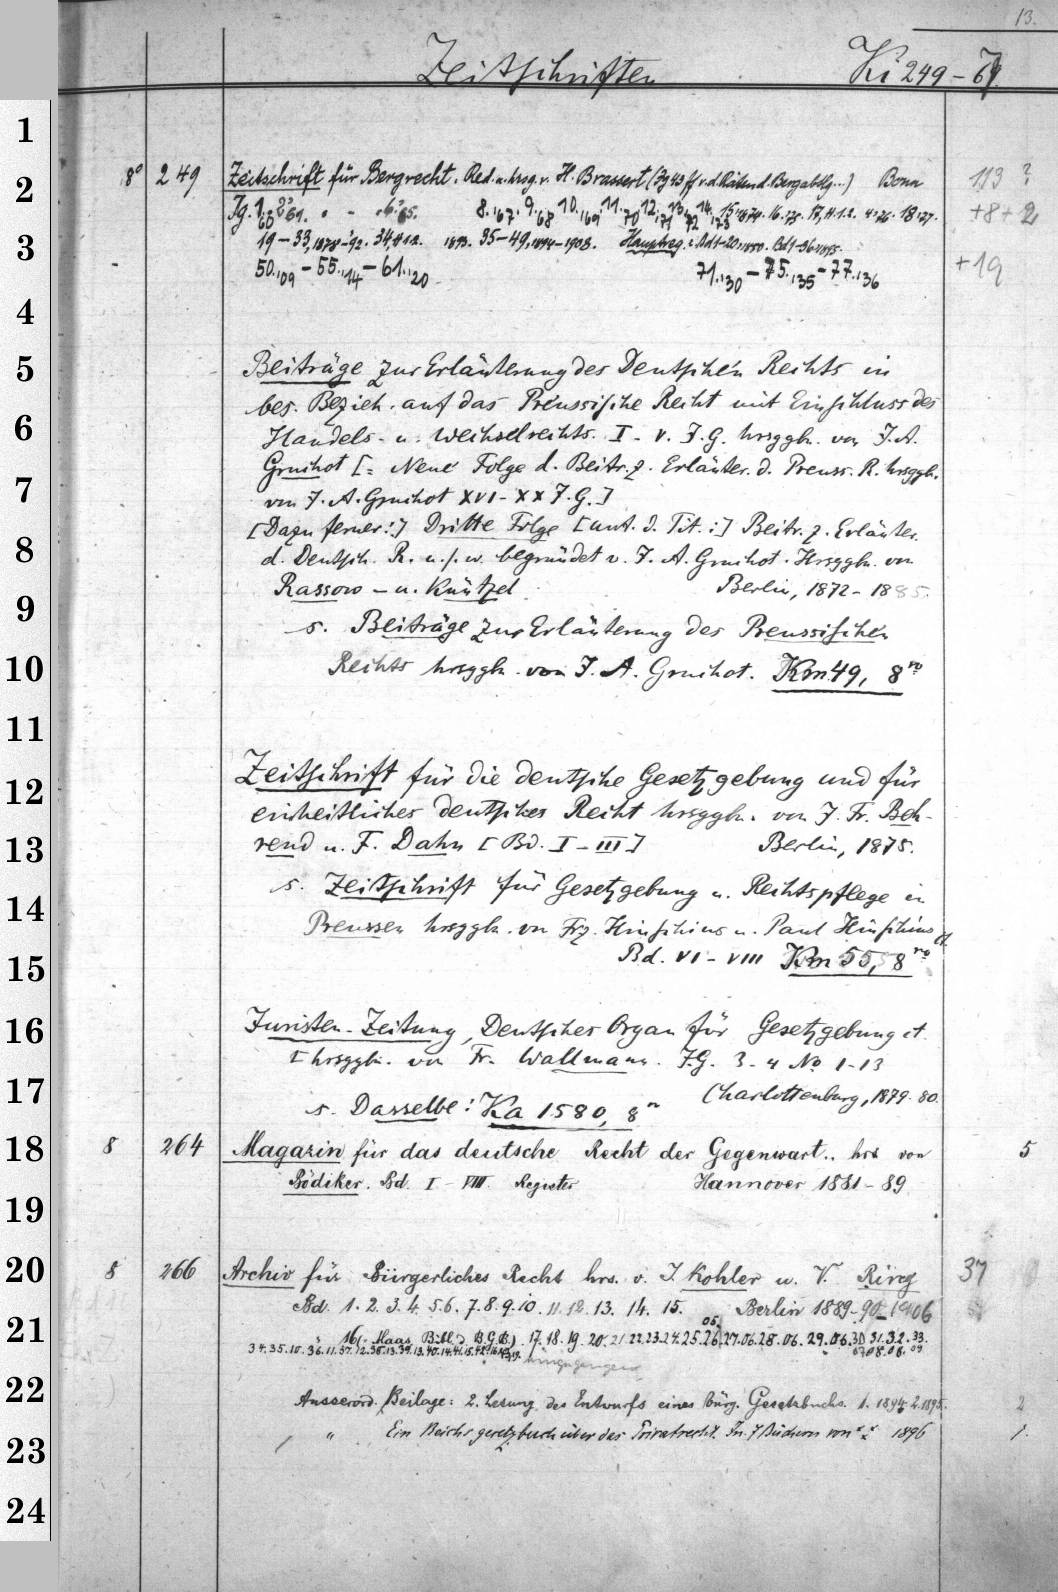 13.
Zeitschriften Ki 249-69.
1
2 8° 249 Zeitschrift für Bergrecht. Red. u. hrsg. v. H. Brassert Bonn 113 ?
+8+2
3 19-33, 1878-92. 34, H 1 2. 1893. 35-49, 1894-1908. Hauptreg. z. Bd 1-20. 1880. Bd 1-36. 1895.
50.,09 - 55.,14 - 61.,20 71.,30 - 75.,35 - 77.,36 +19
4
5 Beiträge zur Erläuterung des Deutschen Rechts in
bes. Bezieh. auf das Preussische Recht mit Einschluss des
6 Handels- u. Wechselrechts. I - V. J.G. hrsggb. von J. A.
Gruchot [= Neue Folge d. Beitr. z. Erläuter. d. Preuss. R. hrsggb.
7 von J. A. Gruchot XVI - XX J.G.]
[Dazu ferner:] Dritte Folge [unt. d. Tit.:] Beitr. z. Erläuter.
8 d. Deutsch. R. u.s.w. begründet v. J. A. Gruchot. Hrsggb. von
Rassow - u. Küntzel Berlin, 1872-1885.
9 s. Beiträge zur Erläuterung des Preussischen
10 Rechts hrsggb. von J. A. Gruchot. Km 49, 8vo
11
12 Zeitschrift für die deutsche Gesetzgebung und für
einheitliches deutsches Recht hrsggb. von J. Fr. Beh-
13 rend u. F. Dahn [Bd. I-III] Berlin, 1875.
14 s. Zeitschrift für Gesetzgebung u. Rechtspflege in
Preussen hrsggb. von Frz. Hinschius u. Paul Hinschius
15 Bd. VI - VIII Km 55, 8vo
16 Juristen-Zeitung, Deutsches Organ für Gesetzgebung et.
[hrsggb. von Fr. Wallmann. J.G. 3-4 No 1-13
17 Charlottenburg, 1879-80.
s. Dasselbe: Ka 1580, 8o
18 8 264 Magazin für das deutsche Recht der Gegenwart.. hrs von 5
Bödiker. Bd. I - VIII. Register Hannover 1881-89
19
20 8 266 Archiv für Bürgerliches Recht hrs. v. J. Kohler u. V. Ring 37
Bd. 1. 2. 3. 4. 5. 6. 7. 8. 9. 10. 11. 12. 13. 14. 15. Berlin 1889-90-1906
21 16 (- Maas, Bibl. d. B.G.B.) 17. 18. 19. 20. 21 22. 23. 24. 25. 26. 27.06. 28.06. 29.06. 30 31. 32. 33.
22 Ausserord. Beilage: 2. Lesung des Entwurfs eines Bürg. Gesetzbuchs. 1. 1894. 2. 1895. 2
23 " Ein Reichsgesetzbuch über das Privatrecht. In 7 Büchern von 1896 1.
24